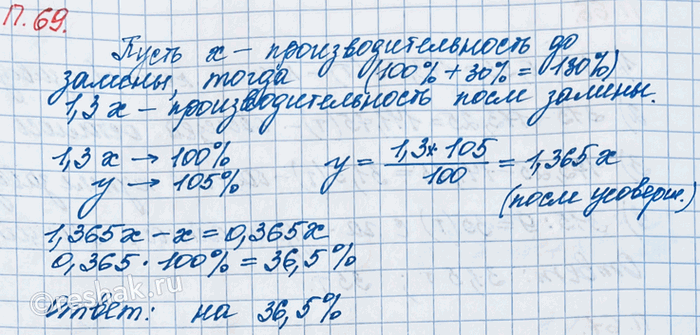 П. 69.
Пусть x – производительность до
замены, тогда (100% + 30% = 130%)
1,3x – производительность после замены.
1,3x → 100%
y → 105%
y = 1,3x · 105 / 100 = 1,365x
(после усоверш.)
1,365x – x = 0,365x
0,365 · 100% = 36,5%
Ответ: на 36,5%
©reshak.ru